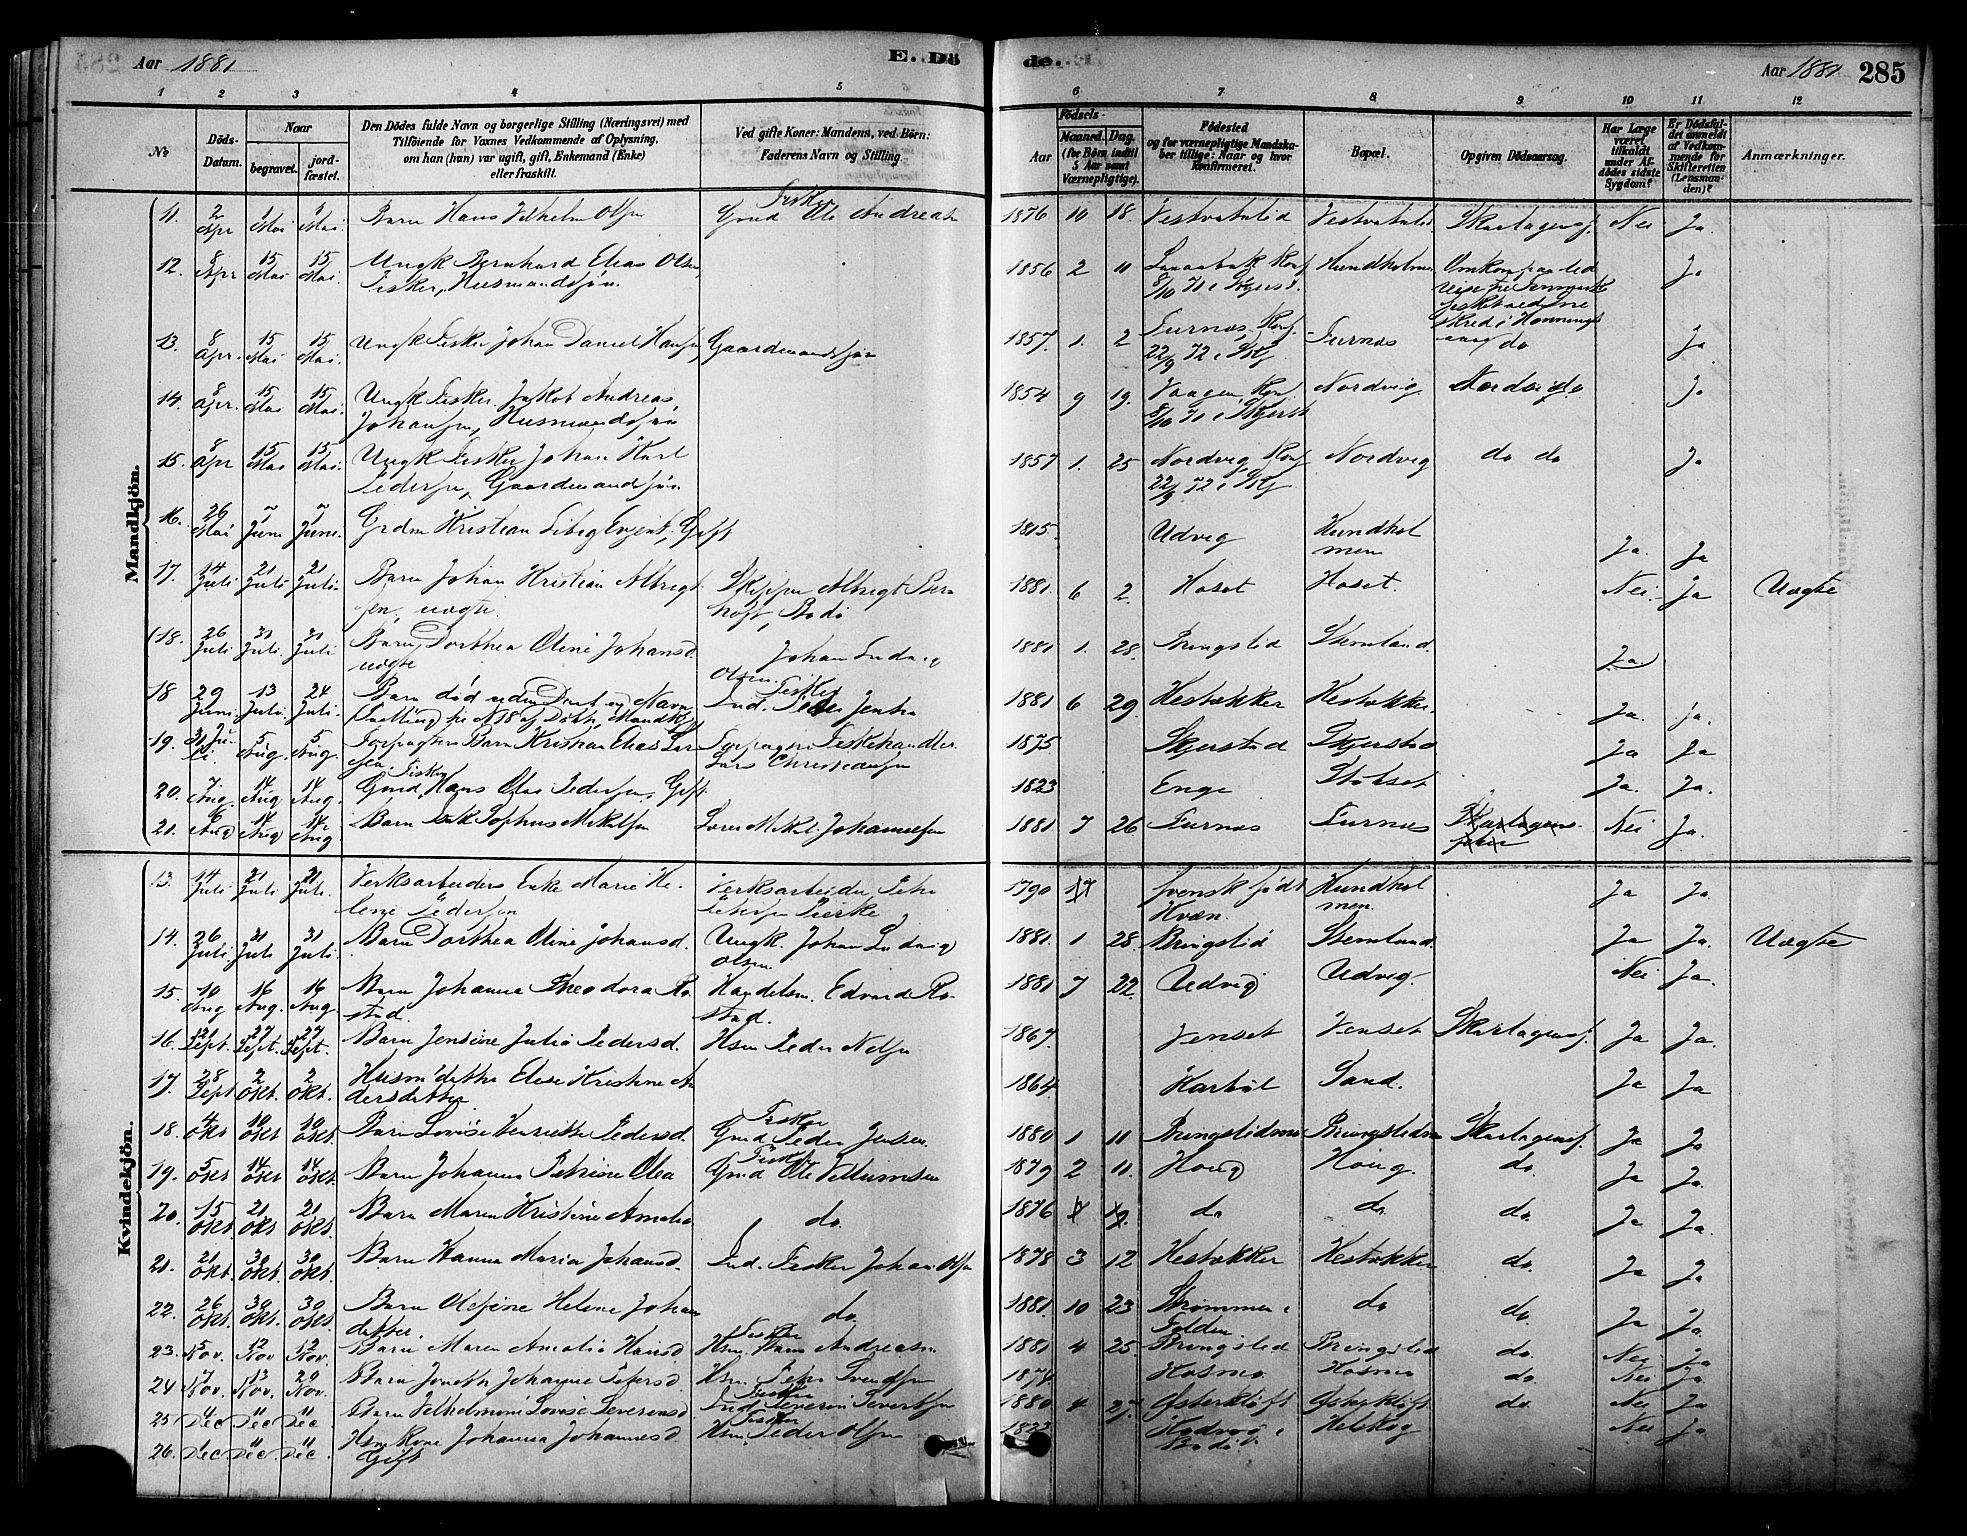 Aar 1881
E. Dö
de.
Aar 1881
285
1 2 3 4 5 6 7 8 9 10 11 12
No
Döds-
Datum.
Naar
begravet.
jord-
fæstet.
Den Dødes fulde Navn og borgerlige Stilling (Næringsvei) med
Tilföiende for Voxnes Vedkommende af Oplysning,
om han (hun) var ugift, gift, Enkemand (Enke)
eller fraskilt.
Ved gifte Koner: Mandens, ved Börn:
Faderens Navn og Stilling.
Födsels-
Aar
Maaned. Dag.
(for Börn indtil
5 Aar samt
Værnepligtige).
Födested
og for værnepligtige Mandska-
ber tillige: Naar og hvor
Konfirmeret.
Bopæl.
Opgiven Dödsaarsag.
Har Læge
været
tilkaldt
under Af-
dødes sidste
Sygdom?
Er Dödsfal-
det anmeldt
af Vedkom-
mende for
Skifteretten
(Lensman-
den)?
Anmærkninger.
Mandkjön.
11. 2 Apr 1 Mai 3 Mai. Barn Hans Vilhelm Olsen Fisker Gmd Ole Andreas 1876 10 18. Skarlagensf. Nei Ja.
12. 8 Apr 15 Mai 15 Mai. Ungk Bernhard Elias Olsen
Fisker, Husmandssøn. 1856 2 11 Konf 8/10 71 i Skjerst. Hundholmen Omkom paa Ved
Ja
13. 8 Apr. 15 Mai 15 Mai. Ungk Fisker Johan Daniel Hansen, Gaardmandssøn 1857. 1. 2 Furnæs, Konf. 22/9 72 i Skj Furnæs do Ja
14. 8 Apr. 15 Mai 15 Mai. Ungk Fisker Jakob Andreas
Johansen, Husmandssøn 1854 9 19. Vaagen, Konf. 8/10 71 i Skjerst Nordvig. do Ja
15. 8 Apr 15 Mai 15 Mai. Ungk Fisker Johan Karl
Pedersen, Gaardmandssøn. 1857 1. 25 Nordvig, Konf 22/9 72 i Skj Nordvig do do Ja
16. 26 Mai 7 Juni 7 Juni. Grdm Kristian Evjent, Gift 1815. Udvig Hundhol
men Ja. Ja
17. 14 Juli 21 Juli 21 Juli. Barn Johan Kristian Albrigt
sen, uægte. Skipper Albrigt
Bodø 1881 6 2. Hoset Hoset. Nei. Ja Uægte
(18. 26 Juli 31 Juli. 31 Juli Barn, Dorthea Oline Johansd.
uægte Johan Ludvig
Olsen. 1881 1. 28. Bringslid Stemland. Ja
18 29 Juni. 13 Juli. 24 Juli. Barn død uden Daab og Navn Fisker Ind. Peder Jensen 1881 6 29. Hestækker Hestækker. Ja. Ja.
19. 31 Ju-
li. 5 Aug. 5 Aug. Barn Kristian Elias Lar
sen. Fiskehandler
Lars 1875 Skjerstad Skjerstad Ja Ja
20. 7 Aug. 14 Aug 14 Aug. Fisker Gmd, Hans Olai Pedersen, Gift 1823 Enge Støtset Ja. Ja.
21. 8 Aug 14 Aug 14 Aug Barn Sophus Mikelsen Mikel Johannessen 1881 7 26 Furnæs Furnæs Skarlagens-
feber Nei Ja.
Kvindekjön.
13. 14 Juli 21 Juli 21 Juli. Verksarbeiders Enke Marie He-
lene Pedersen Verksarbeider Peter
Petersen 1790 Svensk født
Kvæn. Hundhol
men. Ja Ja.
14. 26 Juli. 31 Juli 31 Juli. Barn Dorthea Oline Johansd. Ungk. Johan Ludvig
Olsen 1881. 1 28. Bringslid Stemland. Ja Ja. Uægte
15. 10 Aug 16 Aug. 16 Aug Barn Johanna Theodora Ro-
stad. Handelsm. Edvard Ro-
stad. 1881 7 22. Udvig Udvig. Nei Ja.
16. 21 Sept. 27 Sept. 27 Sept. Barn Jensine Julie Pedersd. Hsm Peder Nilsen 1867. Venset Venset Skarlagensf. Ja Ja.
17. 28 Sept 2 Okt. 2 Okt. Husm'detter Elese Kristine An
dersdetter 1864 Karbøl Sand. Ja Ja
18. 4 Okt 10 Okt 10 Okt. Barn Lovise Henrikke Pedersd. Fisker Gmd Peder Jensen. 1880 1 11 Bringslidmo Bringslidmo Skarlagensf. Ja Ja
19. 5 Okt 14 Okt 14 Okt. Barn Johanna Petrine Olea Fisker Gmd Ole Villumsen 1879 2 11. Houg Houg. do. Ja Ja.
20. 15 Okt. 21 Okt 21 Okt. Barn Maren Kristine Amalia do. 1876 do do. do. Ja Ja.
21. 21 Okt. 30 Okt. 30 Okt. Barn Hanna Maria Johansd. Ind. Fisker Johan Olsen 1878 3 12 Hestækker Hestækker do. Ja Ja
22. 26 Okt. 30 Okt. 30 Okt. Barn Helene Johan
detter. do. 1881 10 23 Strømmen i
Folden do do. Ja Ja.
23. 5 Nov. 12 Nov 12 Nov. Barn Maren Amalie Hansd Fisker Hsm. Hans Andreasen. 1881 4 25. Bringslid Bringslid do. Nei Ja
24 7 Nov. 13 Nov. 20 Nov. Barn Johanne Petersd. Hsm. Peter Svendsen 1874. Kosmo Kosmo do. Nei Ja.
25 4 Dec. 11 Dec 11 Dec. Barn Vilhelmine Lovise Severinsd. Fisker Ind. Severin Sivertsen 1880 4 27. Østerkløft Østerkløft do. Nei Ja
26. Dec. 11 Dec. 11 Dec. Hsm Kone Johanna Johannesd.
Gift Fisker Hsm. Peder Olsen 1823 Bodø. Nei Ja